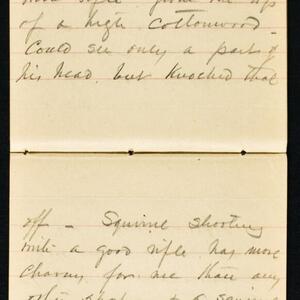 of a high Cottonwood -
Could see only a part of
his head, but Knocked that
off - Squirrel shooting
with a good rifle has more
charm for me than any